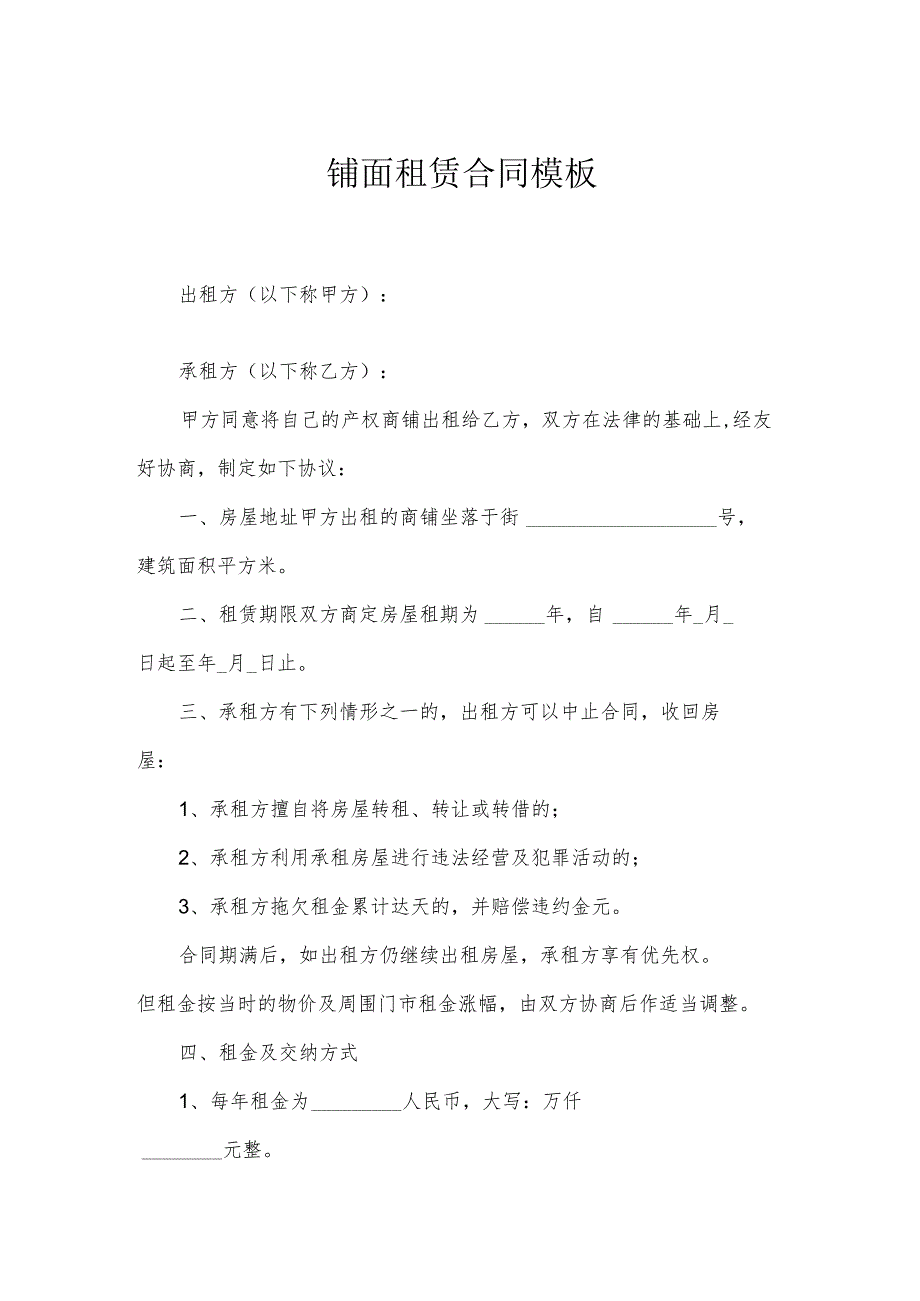 铺面租赁合同模板
出租方（以下称甲方）：
承租方（以下称乙方）：
甲方同意将自己的产权商铺出租给乙方，双方在法律的基础上,经友
好协商，制定如下协议：
一、房屋地址甲方出租的商铺坐落于街 ___________________号，
建筑面积平方米。
二、租赁期限双方商定房屋租期为 ______年，自 ______年_月_
日起至年_月_日止。
三、承租方有下列情形之一的，出租方可以中止合同，收回房
屋：
1、承租方擅自将房屋转租、转让或转借的；
2、承租方利用承租房屋进行违法经营及犯罪活动的；
3、承租方拖欠租金累计达天的，并赔偿违约金元。
合同期满后，如出租方仍继续出租房屋，承租方享有优先权。
但租金按当时的物价及周围门市租金涨幅，由双方协商后作适当调整。
四、租金及交纳方式
1、每年租金为_________人民币，大写：万仟
________元整。